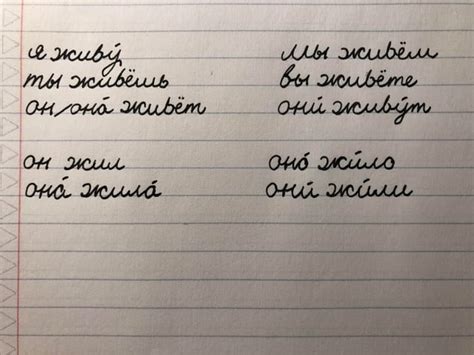 я живу́ мы живём
ты живёшь вы живёте
он/она́ живёт они́ живу́т
он жил оно́ жи́ло
она́ жила́ они́ жи́ли